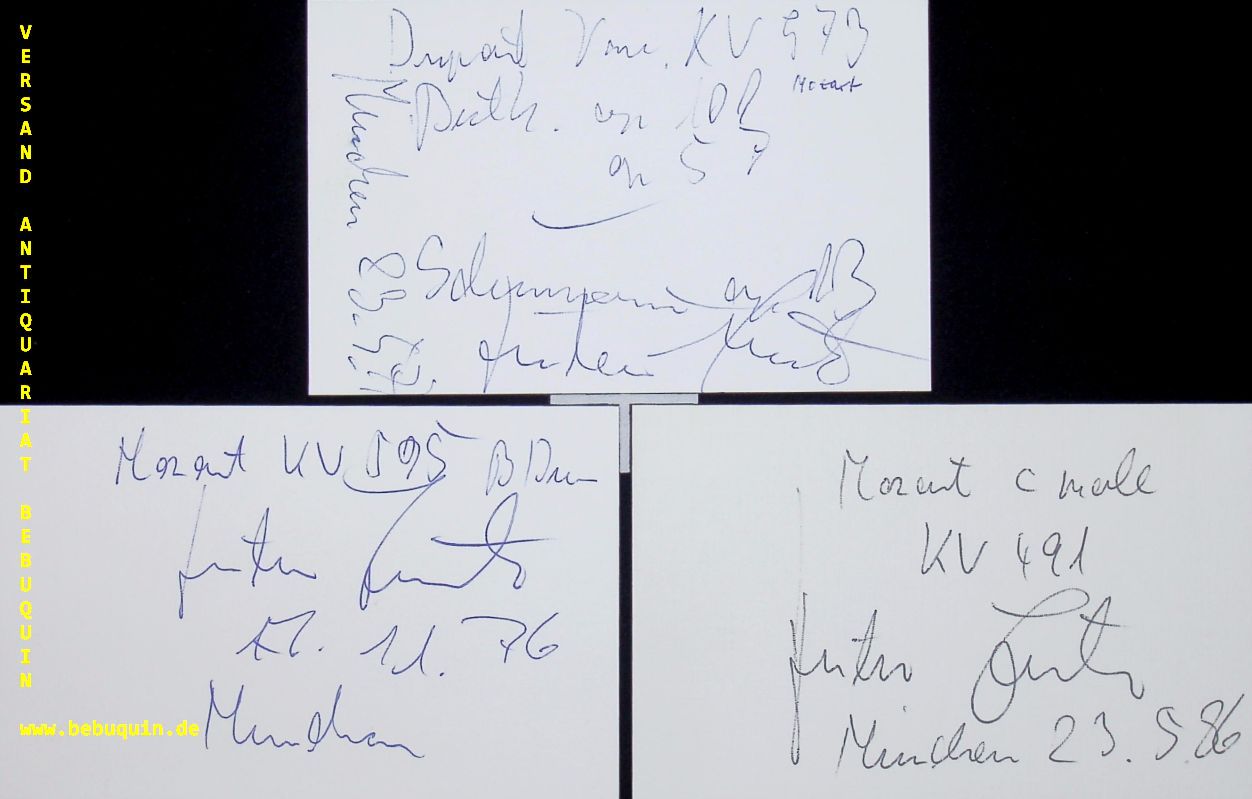 VERSAND ANTIQUARIAT BEBUQUIN
www.bebuquin.de
Duport Var. KV 573
Mozart
Beeth. op 10 2
op 57
Schumann op 13
München
Mozart KV 595 B Dur
17. 11. 76
München
Mozart c moll
KV 491
München 23. 5 86